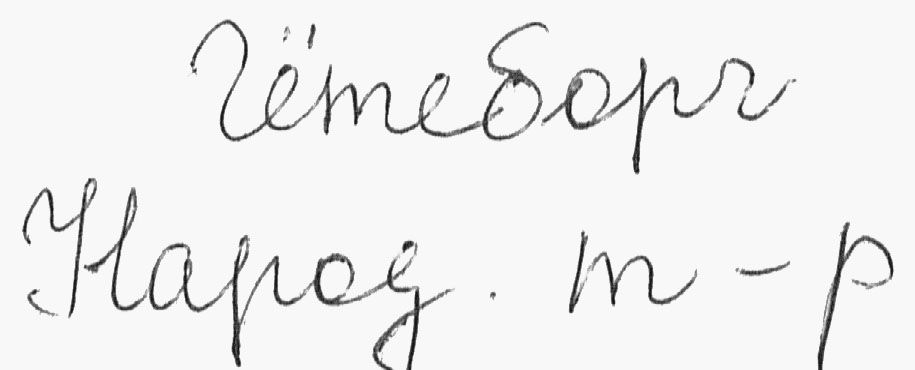 Гётеборг
Народ. т-р